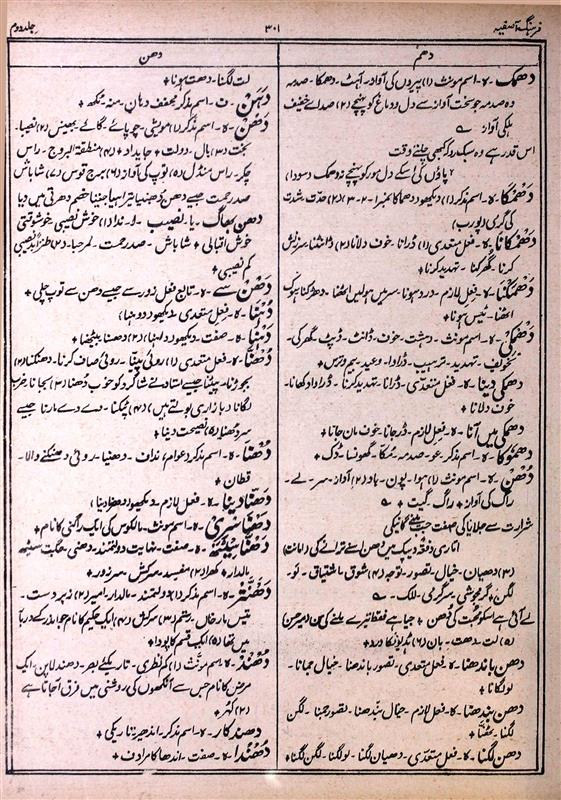 فرہنگ آصفیہ
۳۰۱
جلد دوم
دھم
دھن
دھمک - ہ - اسم مونث (۱) پیروں کی آواز - آہٹ - دھمکا - صدمہ
وہ صدمہ جو سخت آواز سے دل و دماغ کو پہنچے (۲) صدائے خفیف
ہلکی آواز
اس قدر ہے وہ سبک رو کہ کبھی چلنے وقت
پاؤں کی اسکے دل مور کو پہنچے نہ دھمک (سودا)
دھمکا - ہ - اسم مذکر (۱) دیکھو دھماکا نمبر ۱-۲-۳ (۲) حدت - شدت
کی گرمی (پورب)
دھمکانا - ہ - فعل متعدی (۱) ڈرانا - خوف دلانا (۲) ڈانٹنا - سرزنش
کرنا - گھرکنا - تہدید کرنا +
دھمکنا - ہ - فعل لازم - درد ہونا - سر میں ہولیں اٹھنا - دھڑکنا
اٹھنا - ٹیس ہونا +
دھمکی - ہ - اسم مونث - دہشت - خوف - ڈانٹ - ڈپٹ - گھرکی -
تخویف - تہدید - ترہیب - ڈراوا - وعید - بیم و ترس +
دھمکی دینا - ہ - فعل متعدی - ڈرانا - تہدید کرنا - ڈراوا دکھانا -
خوف دلانا +
دھمکی میں آنا - ہ - فعل لازم - ڈر جانا - خوف مان جانا +
دھموکا - ہ - اسم مذکر - عو - صدمہ - مکا - گھونسا - ڈک +
دھن - ہ - اسم مونث (۱) ہوا - پون - باد (۲) آواز - سر - لے -
راگ کی آواز + راگ - گیت +
شرارت سے صلایا کی صفت جب بلبلے گائیکی
اتاری دفعۃً دیپک میں دھن اسنے ترانے کی (امانت)
(۳) دھیان - خیال - تصور - توجہ (۴) شوق - اشتیاق - لو -
لگن - گرمجوشی - سرگرمی - للک -
لے آئی ہے سکو محبت کی دھن + جیا ہے فقط تیرے ملنے کی سن (میر حسن)
(۵) لت - دھت - بان (۶) ہڈیوں کا درد +
دھن باندھنا - ہ - فعل متعدی - تصور باندھنا - خیال جمانا -
لو لگانا +
دھن بندھنا - ہ - فعل لازم - خیال بندھنا - تصور جمنا - لگن
لگنا - +
دھن لگنا - ہ - فعل متعدی - دھیان لگنا - لو لگنا - لگن لگنا +
لت لگنا - دھت ہونا +
دہن - ف - اسم مذکر - مخفف دہان - منہ - مکھ +
دھن - ہ - اسم مذکر (۱) مویشی - چوپائے - گائے - بھینس (۲) نصیبا -
بخت (۳) مال - دولت + جایداد + (۴) منطقۃ البروج - راس
چکر - راس منڈل (۵) توپ کی آواز (۶) برج قوس (۷) شاباش
صد رحمت جیسے دھن دھنیا تیرا ہیا جینا خصم دھرتی میں دیا
دھن بھاگ - یا - نصیب - ہ - ندا (۱) خوش نصیبی - خوشوقتی
خوش اقبالی + شاباش - صد رحمت - مرحبا - (۲) طنزاً بدنصیبی
کم نصیبی +
دھن سے - ہ - تابع فعل - زور سے جیسے دھن سے توپ چلی +
دہنا - ہ - فعل متعدی - دیکھو دوہنا)
دہنا - ہ - صفت - دیکھو دہنا) (۲) دھسنا - بیٹھنا +
دھننا - ہ - فعل متعدی (۱) روئی پیٹنا - روئی صاف کرنا - دھنکنا (۲)
جوڑنا - پیٹنا جیسے استاد نے شاگرد کو خوب دھنا (۳) بجانا - ضرب
لگانا (بازاری بولتے ہیں) (۴) پٹکنا - دے دے مارنا جیسے
سر دھننا (۵) نصیحت دینا +
دھنا - ہ - اسم مذکر (عوام) نداف - دھنیا - روئی دھنکنے والا -
قطان +
دھنا دینا - ہ - فعل لازم - دیکھو (دھرنا دینا)
دھنا سری - ہ - اسم مونث - مالکوس کی ایک راگنی کا نام +
دھنا سیٹھ - ہ - صفت - نہایت دولتمند - دھنی - جگت سیٹھ
مالدار + کھرا (۲) مفسد - سرکش - سرزور +
دھنتر - ہ - اسم مذکر (۱) دولتمند - مالدار - امیر (۲) زبردست -
تیس مار خاں - رستم (۳) سرکش (۴) ایک حکیم کا نام جو اندر کے دربا
میں تھا (۵) ایک قسم کا پودا +
دھند - ہ - اسم مونث (۱) کم نظری - تاریکئے بصر - دھندلا پن - ایک
مرض کا نام جس سے آنکھوں کی روشنی میں فرق آ جاتا ہے
(۲) کہر +
دھندکار - ہ - اسم مذکر - اندھیرا - تاریکی +
دھندا - ہ - صفت - اندھا کا مرادف +